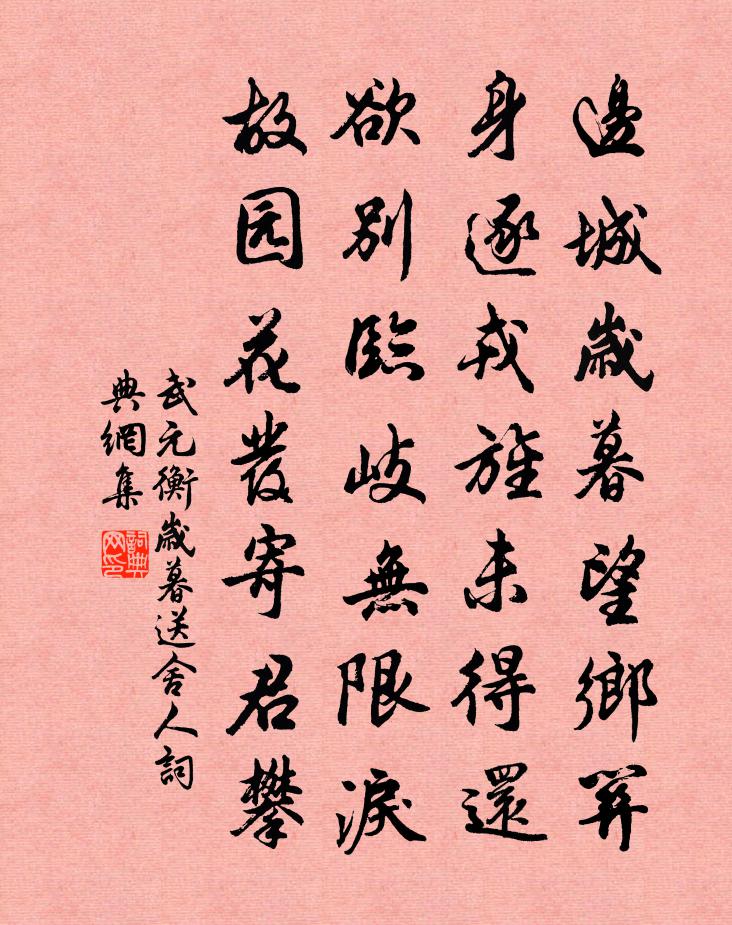 邊城歲暮望鄉關
身逐戎旌未得還
欲別臨岐無限淚
故园花發寄君攀
武元衡歲暮送舍人詞
典網集
詞典网印